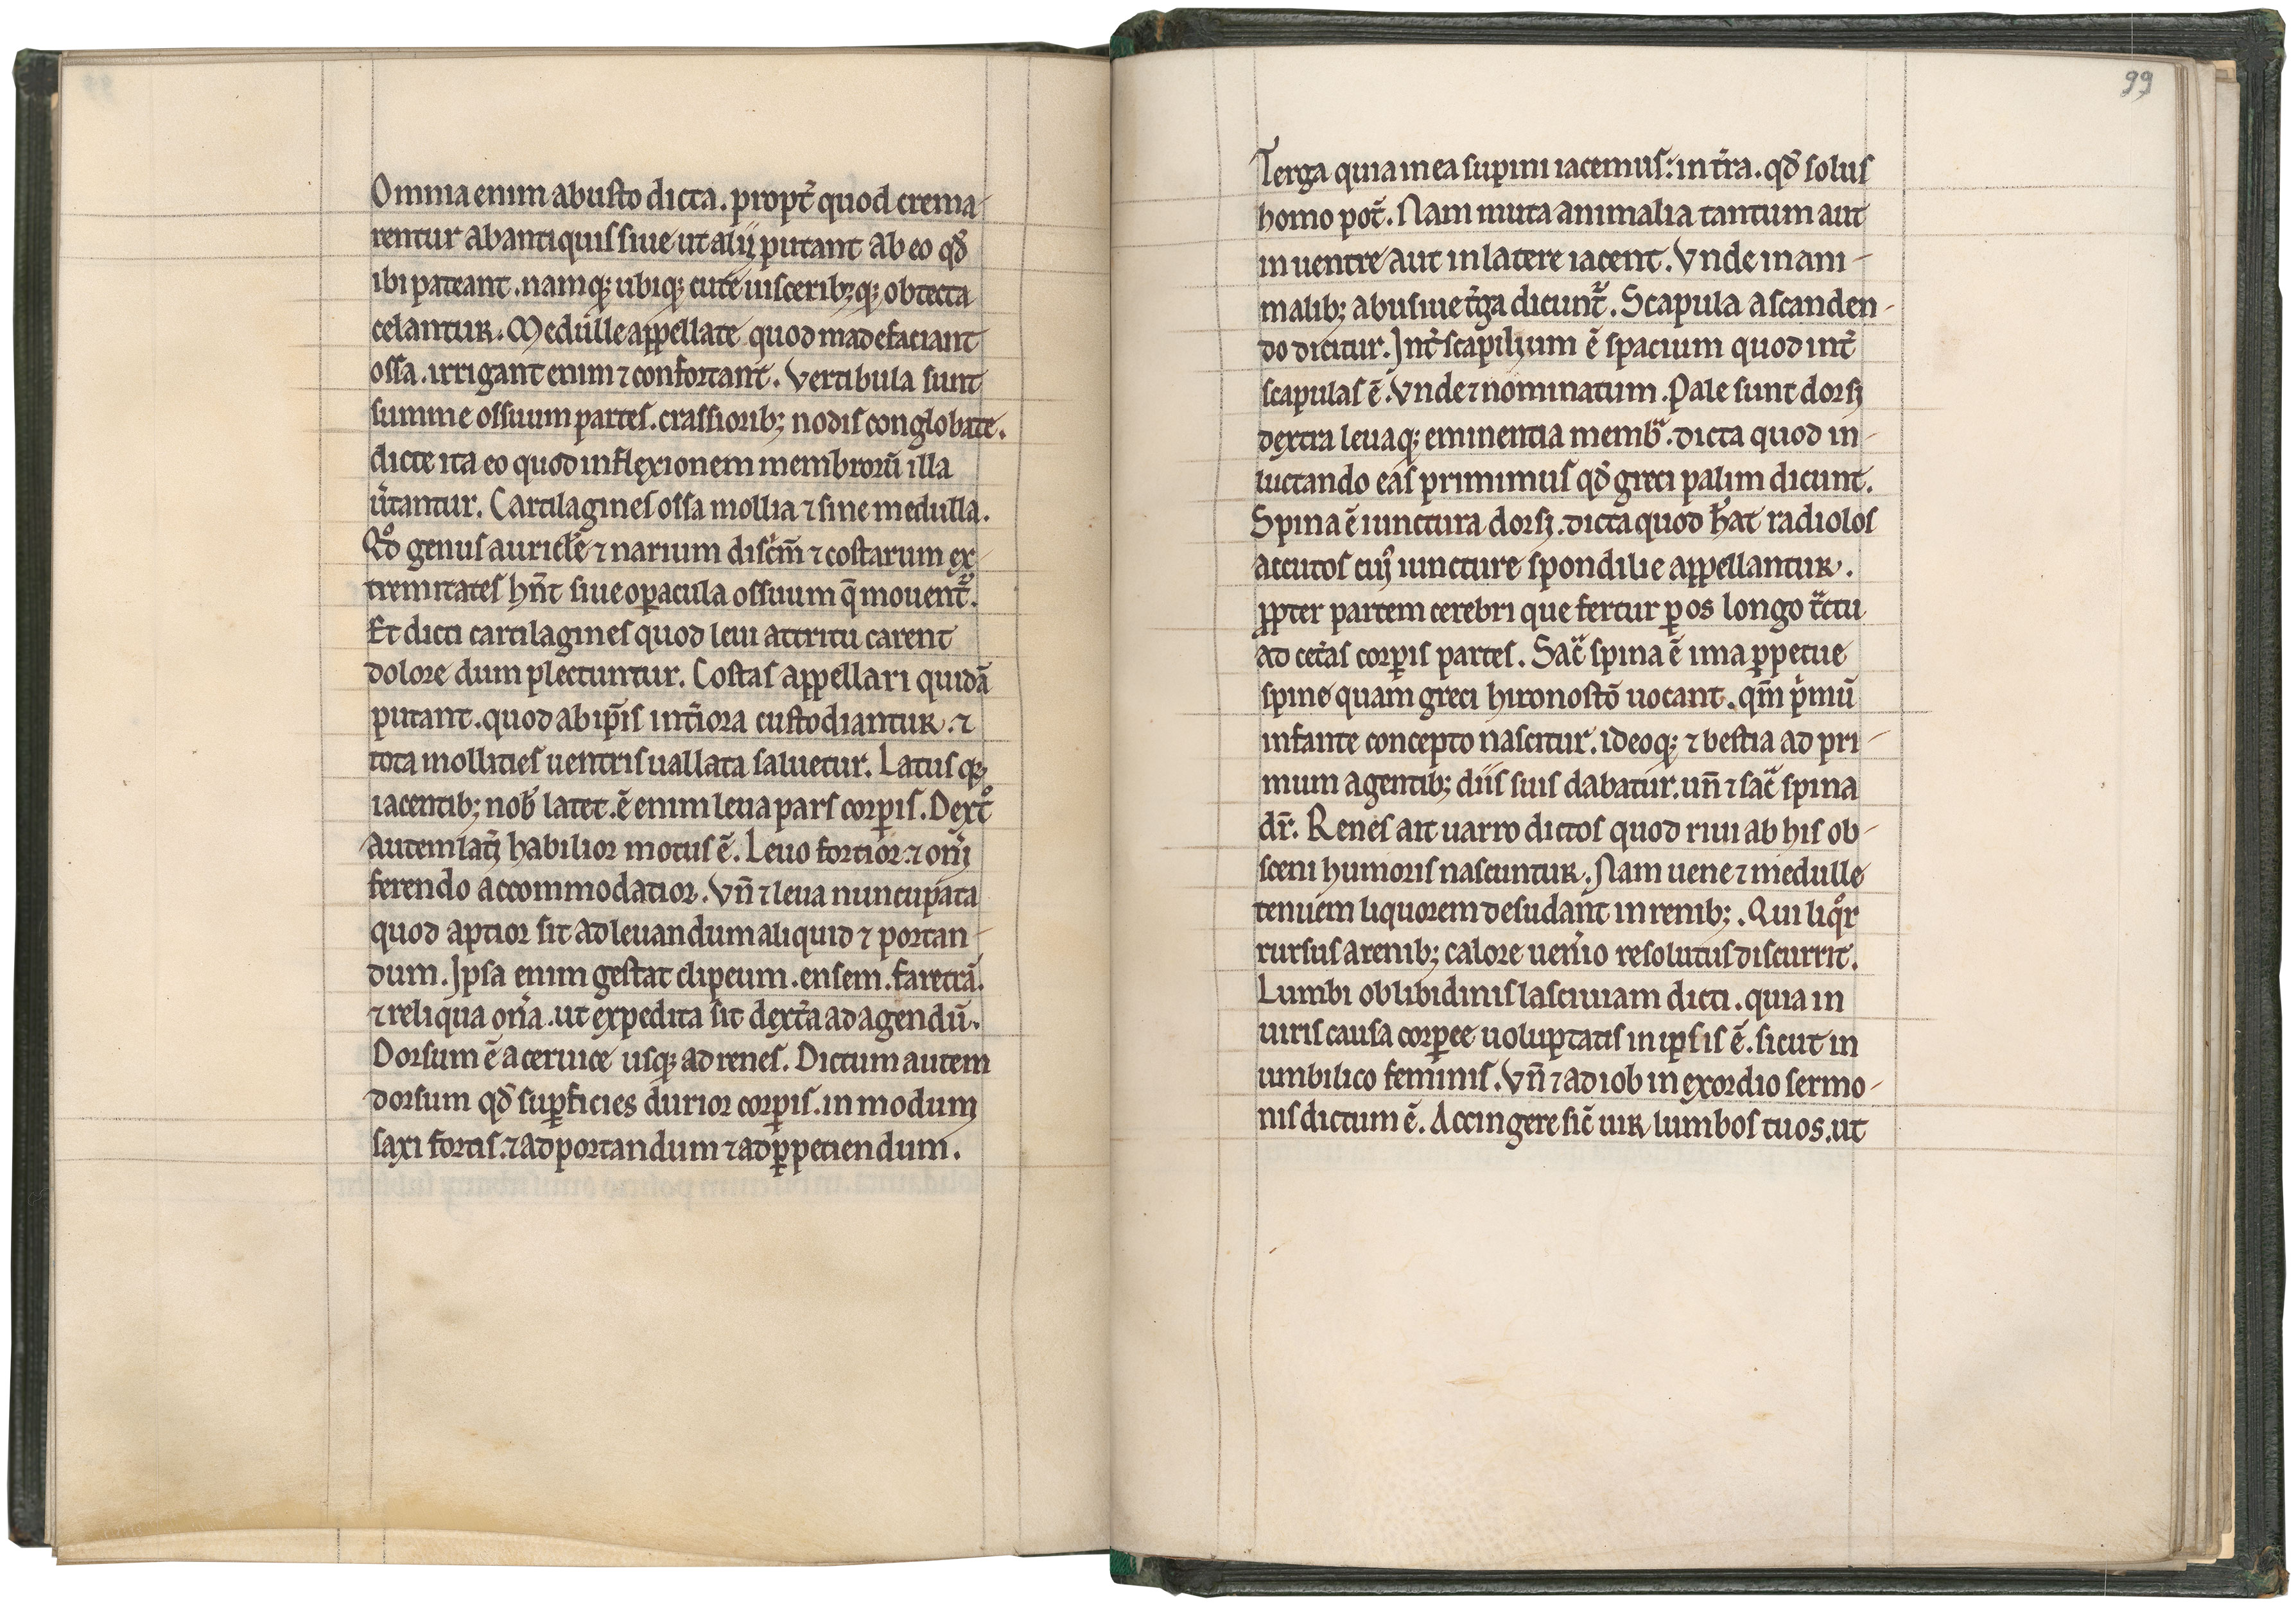 Omnia enim ab usto dicta. propt̉ quod crema-
rentur ab antiquis siue ut alij putant ab eo qđ
ibi pateant. namq; ubiq; cute uisceribꝫq; obtecta
celantur. Medulle appellate quod madefaciant
ossa. irrigant enim ⁊ confortant. Vertibula sunt
summe ossuum partes. crassioribꝫ nodis conglobate.
dicte ita eo quod in flexionem membrorū illa
ủtantur. Cartilagines ossa mollia ⁊ sine medulla.
Qđ genus auricƚe ⁊ narium discͥm̄ ⁊ costarum ex-
tremitates hn̄t siue opacula ossuum q̄ mouent᷑.
Et dicti cartilagines quod leui attritu carent
dolore dum plectuntur. Costas appellari quidā
putant. quod ab ip̄is int̉iora custodiantur. ⁊
tota mollities uentris uallata saluetur. Latus q;
iacentibꝫ nob̄ latet. ē enim leua pars corꝑis. Dextͦ
autem lat̉i habilior motus ē. Leuo fortior. ⁊ on̉i
ferendo accommodatior. Vn̄ ⁊ leua nuncupata
quod aptior sit ad leuandum aliquid ⁊ portan-
dum. Ipsa enim gestat clipeum. ensem. faretrā.
⁊ reliqua on̉a. ut expedita sit dext̉a ad agendū.
Dorsum ē a ceruice usq; ad renes. Dictum autem
dorsum qđ suꝑficies durior corꝑis. in modum
saxi fortis. ⁊ ad portandum ⁊ ad ꝑpetiendum.
99
Terga quia in ea supini iacemus: in t̉ra. qđ solus
homo pot̃. Nam muta animalia tantum aut
in uentre aut in latere iacent. Vnde in ani-
malibꝫ abusiue t̉ga dicunt᷑. Scapula a scanden-
do dicitur. Int̉scapilium ē spacium quod int̉
scapulas ē. Vnde ⁊ nominatum. Pale sunt dorsi
dextra leuaq; eminentia membᷓ. dicta quod in
luctando eas primimus qđ greci palim dicunt.
Spina ē iunctura dorsi. dicta quod h̄at radiolos
accutos cuiꝰ iuncture spondilie appellantur.
ꝓpter partem cerebri que fertur ꝑ os longo tᷓctu
ad cet̉as corꝑis partes. Sacᷓ spina ē ima ꝑpetue
spine quam greci hironostō uocant. qm̄ pͥmū
infante concepto nascitur. ideoq; ⁊ bestia ad pri-
mum agentibꝫ diis suis dabatur. un̄ ⁊ sacᷓ spina
dr̄. Renes ait uarro dictos quod riui ab his ob-
sceni humoris nascuntur. Nam uene ⁊ medulle
tenuem liquorem desudant in renibꝫ. Qui liqͦr
rursus a renibꝫ calore uen̉io resolutus discurrit.
Lumbi ob libidinis lasciuiam dicti. quia in
uiris causa corꝑee uoluptatis in ipsis ē. sicut in
umbilico feminis. Vn̄ ⁊ ad iob in exordio sermo-
nis dictum ē. Accingere sic̄ uir lumbos tuos. ut